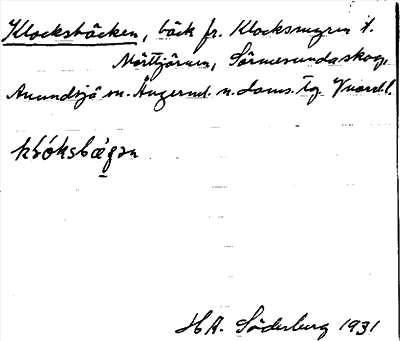 Klocksbäcken, bäck fr. Klocksmyren t.
Mörttjärnen, Sörmesundaskog,
Anundsjö sn. Ångerml. n. doms. tg
klóksbæ̀gan
H A. Söderberg 1931